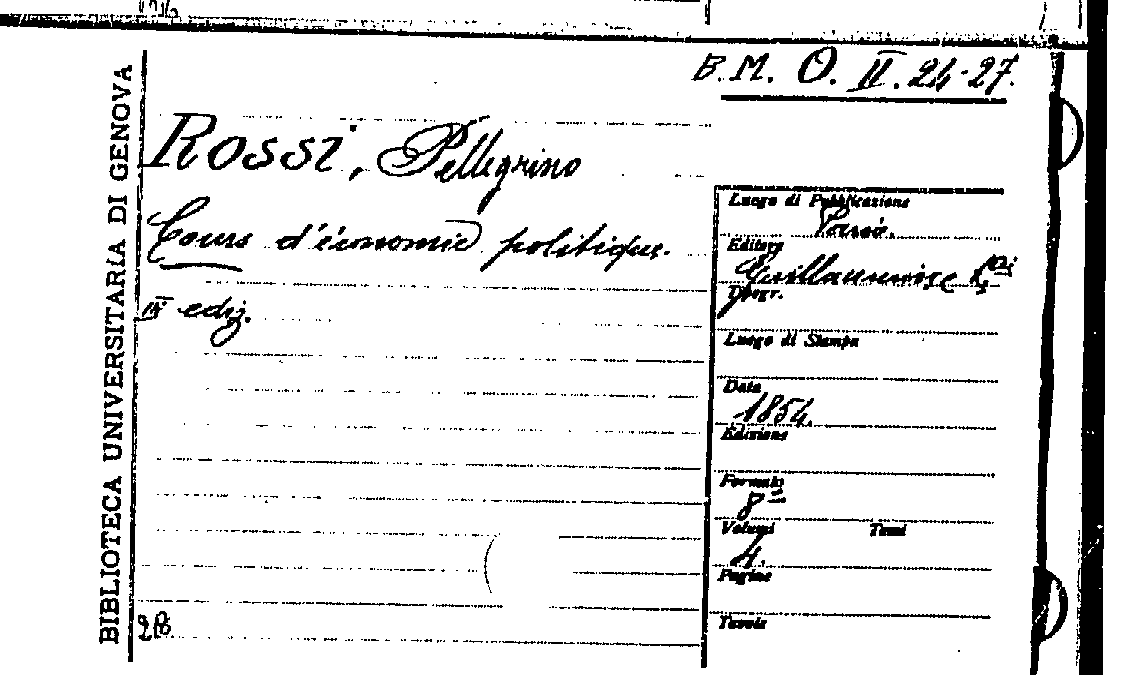 B. M. O. II. 24-27.
BIBLIOTECA UNIVERSITARIA DI GENOVA
Rossi, Pellegrino
Cours d'économie politique.
III ediz.
Luogo di Pubblicazione
Editore
Tipogr.
Luogo di Stampa
Data
1854.
Edizione
Formato
8º
Volumi Tomi
4.
Pagine
Tavole